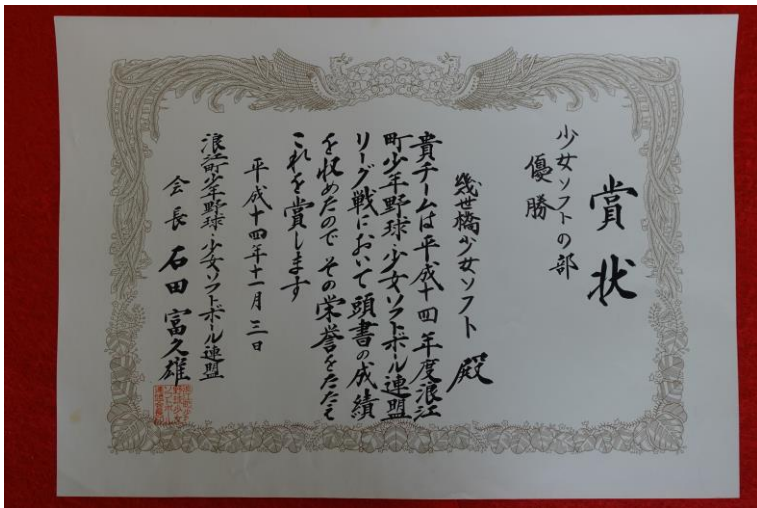 賞状
少女ソフトの部
優勝
幾世橋少女ソフト 殿
貴チームは平成十四年度浪江
町少年野球・少女ソフトボール連盟
リーグ戦において頭書の成績
を収めたので その栄誉をたたえ
これを賞します
平成十四年十一月三日
浪江町少年野球・少女ソフトボール連盟
会長 石田富久雄